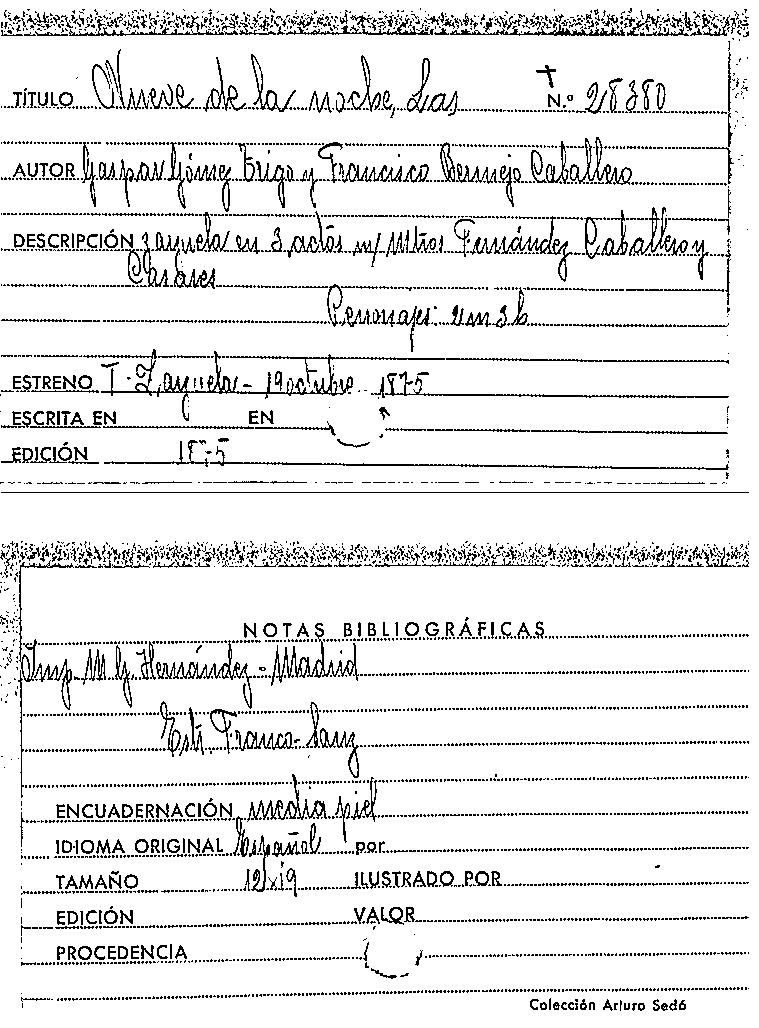 TÍTULO Nueve de la noche, Las N.º 28380
AUTOR Gaspar Gómez Trigo y Francisco Bermejo Caballero
DESCRIPCIÓN zarzuela en 3 actos m/ Mtros Fernández Caballero y
Casares
Personajes: 2m 3h
ESTRENO T. Zarzuela - 19 octubre 1875
ESCRITA EN EN
EDICIÓN 1875
NOTAS BIBLIOGRÁFICAS
Imp. M. G. Hernández - Madrid
Estr. Franco-Sanz
ENCUADERNACIÓN media piel
IDIOMA ORIGINAL Español por
TAMAÑO 12x19 ILUSTRADO POR
EDICIÓN VALOR
PROCEDENCIA
Colección Arturo Sedó